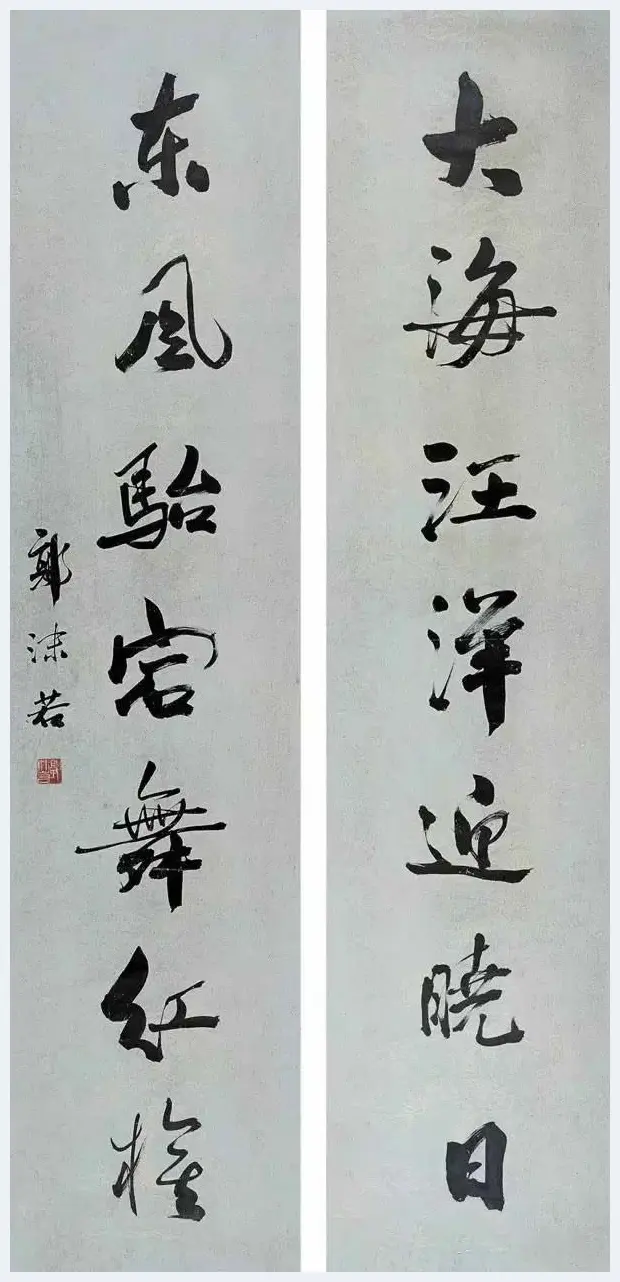 大海汪洋迎晓日
东风駘宕舞红旗
郭沫若